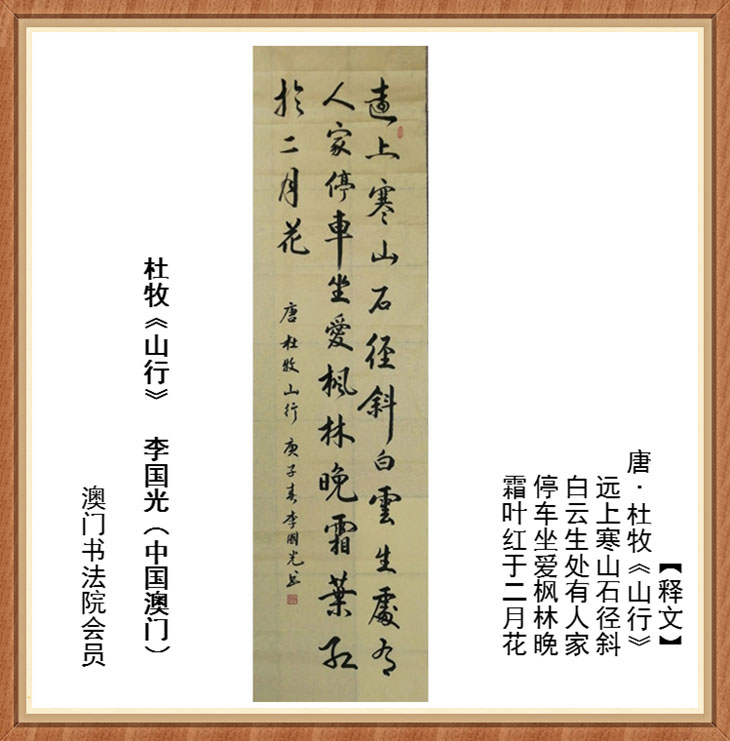 【释文】
唐·杜牧《山行》
远上寒山石径斜
白云生处有人家
停车坐爱枫林晚
霜叶红于二月花
遠上寒山石徑斜白雲生處有
人家停車坐愛楓林晚霜葉紅
於二月花
唐杜牧山行庚子春李國光书
杜牧《山行》 李国光（中国澳门）
澳门书法院会员